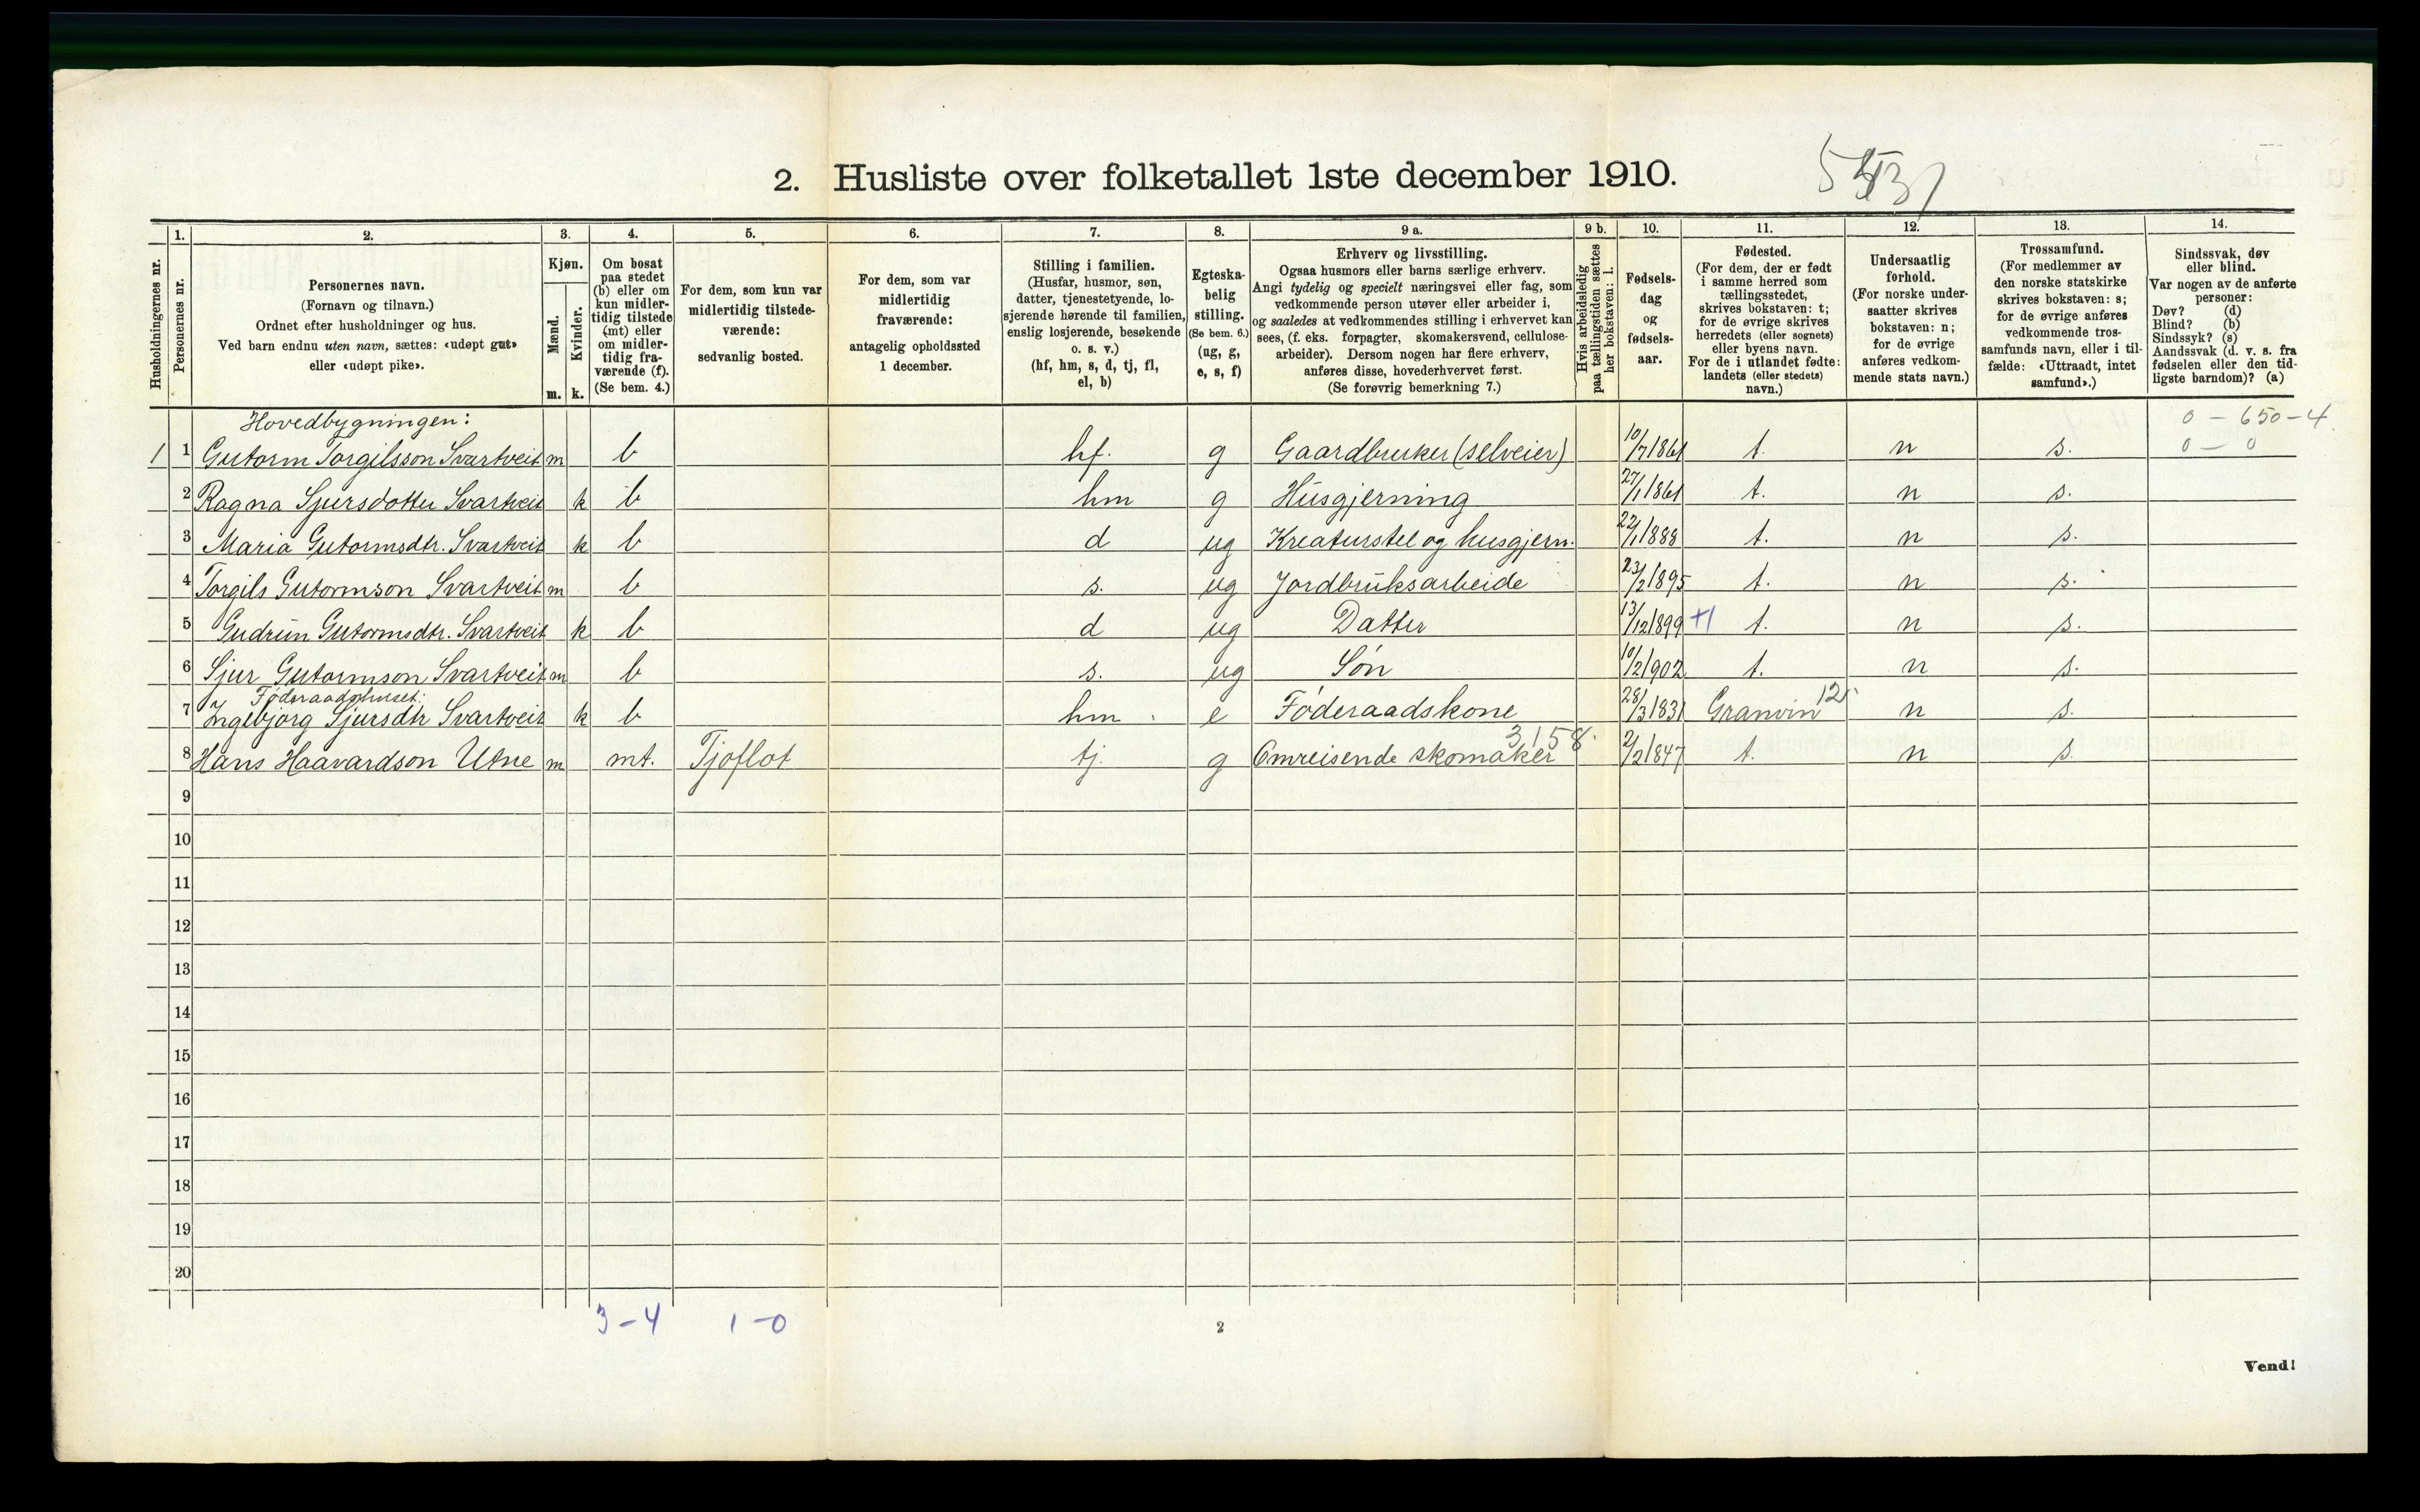 2. Husliste over folketallet 1ste december 1910.
Husholdningernes nr.
1.
Personernes nr.
2.
Personernes navn.
(Fornavn og tilnavn.)
Ordnet efter husholdninger og hus.
Ved barn endnu uten navn, sættes: «udøpt gut»
eller «udøpt pike».
3.
Kjøn.
Mænd.
Kvinder.
m. k.
4.
Om bosat
paa stedet
(b) eller om
kun midler-
tidig tilstede
(mt) eller
om midler-
tidig fra-
værende (f).
(Se bem. 4.)
5.
For dem, som kun var
midlertidig tilstede-
værende:
sedvanlig bosted.
6.
For dem, som var
midlertidig
fraværende:
antagelig opholdssted
1 december.
7.
Stilling i familien.
(Husfar, husmor, søn,
datter, tjenestetyende, lo-
sjerende hørende til familien,
enslig losjerende, besøkende
o. s. v.)
(hf, hm, s, d, tj, fl,
el, b)
8.
Egteska-
belig
stilling.
(Se bem. 6.)
(ug, g,
e, s, f)
9 a.
Erhverv og livsstilling.
Ogsaa husmors eller barns særlige erhverv.
Angi tydelig og specielt næringsvei eller fag, som
vedkommende person utøver eller arbeider i,
og saaledes at vedkommendes stilling i erhvervet kan
sees, (f. eks. forpagter, skomakersvend, cellulose-
arbeider). Dersom nogen har flere erhverv,
anføres disse, hovederhvervet først.
(Se forøvrig bemerkning 7.)
9 b.
Hvis arbeidsledig
paa tællingstiden sættes
her bokstaven: l.
10.
Fødsels-
dag
og
fødsels-
aar.
11.
Fødested.
(For dem, der er født
i samme herred som
tællingsstedet,
skrives bokstaven: t;
for de øvrige skrives
herredets (eller sognets)
eller byens navn.
For de i utlandet fødte:
landets (eller stedets)
navn.)
12.
Undersaatlig
forhold.
(For norske under-
saatter skrives
bokstaven: n;
for de øvrige
anføres vedkom-
mende stats navn.)
13.
Trossamfund.
(For medlemmer av
den norske statskirke
skrives bokstaven: s;
for de øvrige anføres
vedkommende tros-
samfunds navn, eller i til-
fælde: «Uttraadt, intet
samfund».)
14.
Sindssvak, døv
eller blind.
Var nogen av de anførte
personer:
Døv? (d)
Blind? (b)
Sindssyk? (s)
Aandssvak (d. v. s. fra
fødselen eller den tid-
ligste barndom)? (a)
Hovedbygningen: 0 - 650 - 4
1 1 Gutorm Torgilsson Svartveit m b hf. g Gaardbruker (selveier) 10/7 1861 t. n s. 0 - 0
2 Ragna Sjursdotter Svartveit k b hm g Husgjerning 27/1 1861 t. n s.
3 Maria Gutormsdtr. Svartveit k b d ug Kreaturstel og husgjern. 22/1 1888 t. n s.
4 Torgils Gutormson Svartveit m b s. ug Jordbruksarbeide 23/2 1895 t. n s.
5 Gudrun Gutormsdtr. Svartveit k b d ug Datter 13/12 1899 +1 t. n s.
6 Sjur Gutormson Svartveit m b s. ug Søn 10/2 1902 t. n s.
Føderaadshuset:
7 Ingebjørg Sjursdtr Svartveit k b hm e Føderaadskone 28/3 1831 Granvin 12 n s.
3158.
8 Hans Haavardson Utne m mt. Tjoflot tj. g Omreisende skomaker 2/2 1847 t. n s.
9
10
11
12
13
14
15
16
17
18
19
20
3 - 4 1 - 0
2
Vend!